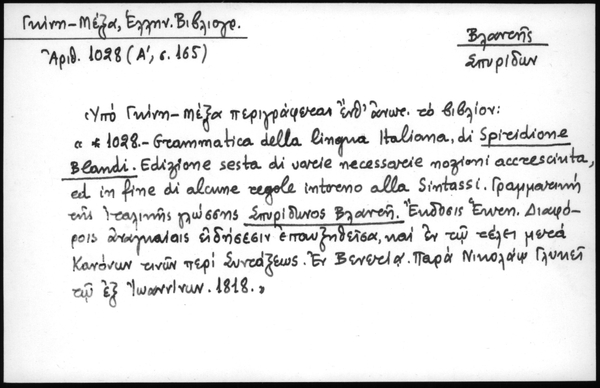 Γκίνη-Μέξα, Ἑλλην. Βιβλιογρ.
Ἀριθ. 1028 (Α', σ. 165)
Βλαντῆς
Σπυρίδων
«Ὑπό Γκίνη-Μέξα περιγράφεται ἔνθ' ἀνωτ. τό βιβλίον:
« * 1028.- Grammatica della lingua Italiana, di Spiridione
Blandi. Edizione sesta di varie necessarie nozioni accresciuta,
ed in fine di alcune regole intorno alla Sintassi. Γραμματική
τῆς Ἰταλικῆς γλώσσης Σπυρίδωνος Βλαντῆ. Ἔκδοσις Ἕκτη. Διαφό-
ροις ἀναγκαίαις εἰδήσεσιν ἐπαυξηθεῖσα, καί ἐν τῷ τέλει μετά
Κανόνων τινῶν περί Συντάξεως. Ἐν Βενετίᾳ. Παρά Νικολάῳ Γλυκεῖ
τῷ ἐξ Ἰωαννίνων. 1818.»